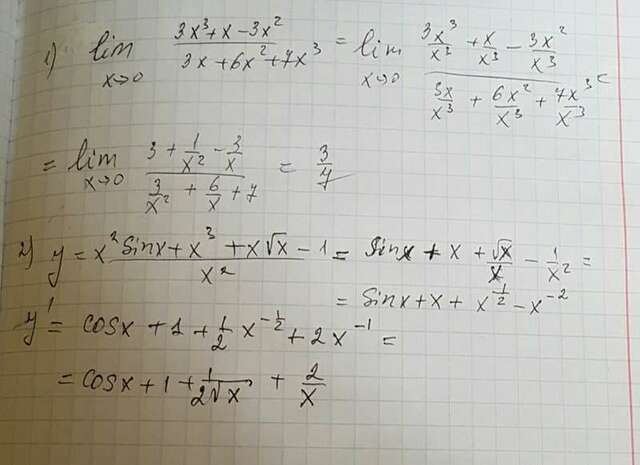 1) lim x→0 (3x³+x-3x²)/(3x+6x²+7x³) = lim x→0 (3x³/x³ + x/x³ - 3x²/x³)/(3x/x³ + 6x²/x³ + 7x³/x³) =
= lim x→0 (3 + 1/x² - 3/x)/(3/x² + 6/x + 7) = 3/7
2) y = (x² sinx + x³ + x√x - 1)/x² = sinx + x + √x/x - 1/x² =
= sinx + x + x^(1/2) - x^(-2)
y' = cosx + 1 + 1/2 x^(-1/2) + 2x^(-1) =
= cosx + 1 + 1/(2√x) + 2/x